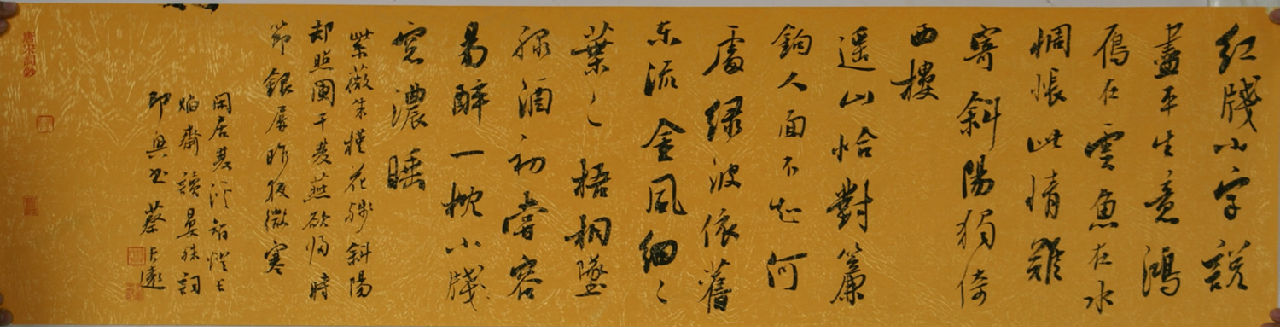 红牋小字説
盡平生意鴻
雁在雲魚在水
惆悵此情難
寄斜陽獨倚
西樓
遥山恰對簾
鉤人面不知何
處绿波依舊
东流金風細々
葉々梧桐墜
绿酒初嘗容
易醉一枕小牋
窓濃睡
紫薇朱槿花残斜陽
却照闌干双燕欲归時
節銀屏昨夜微寒
闲居
齋讀晏殊詞
即興书蔡